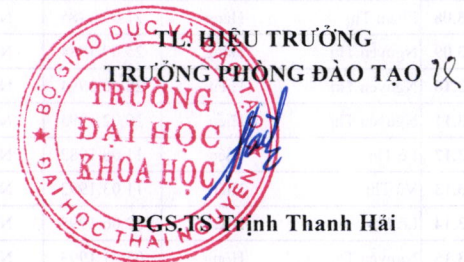 TL. HIỆU TRƯỞNG
TRƯỞNG PHÒNG ĐÀO TẠO
BỘ GIÁO DỤC VÀ ĐÀO TẠO
TRƯỜNG
ĐẠI HỌC
KHOA HỌC
ĐẠI HỌC THÁI NGUYÊN
PGS.TS Trịnh Thanh Hải